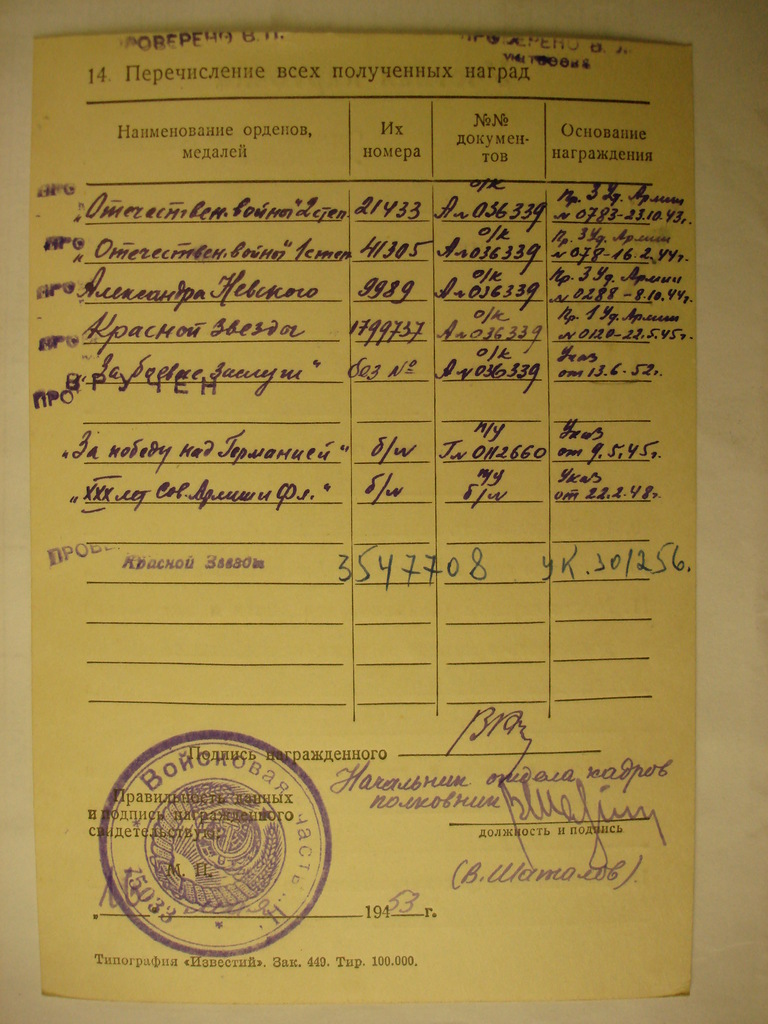 ПРОВЕРЕНО В. П.
ПРОВЕРЕНО В. Л.
14. Перечисление всех полученных наград
Наименование орденов, медалей
Их номера
№№ документов
Основание награждения
ПРО „Отечествен. войны" 2 степ. 21433 о/к А № 036339 Пр. 3 Уд. Армии № 0783-23.10.43г.
ПРО „Отечествен. войны" 1 степ 41305 о/к А № 036339 Пр. 3 Уд. Армии № 078-16.2.44г.
ПРО Александра Невского 9989 о/к А № 036339 Пр. 3 Уд. Армии № 0288-8.10.44г.
ПРО Красной Звезды 1799737 о/к А № 036339 Пр. 1 Уд. Армии № 0120-22.5.45г.
„За боевые заслуги" без № о/к А № 036339 Указ от 13.6.52г.
ПРО ВРУЧЕН
„За победу над Германией" б/№ п/у Г № 0112660 Указ от 9.5.45г.
„XXX лет Сов. Армии и Фл." б/№ п/у б/№ Указ от 22.2.48г.
ПРОВЕ Красной Звезды 3547708 УК. 301256.
Подпись награжденного
Начальник отдела кадров
полковник
Правильность данных
и подпись награжденного
свидетельствую:
должность и подпись
М. П.
(В. Шаталов).
Войсковая часть
75033
„ 1953 г.
Типография «Известий». Зак. 449. Тир. 100.000.